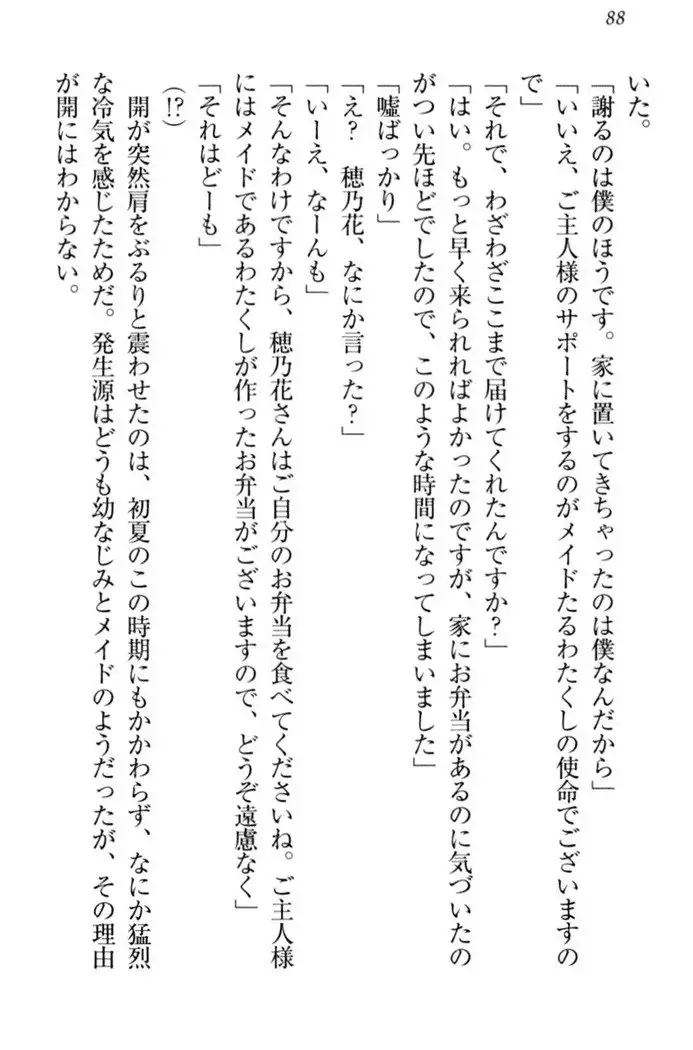 88
いた。
「謝るのは僕のほうです。家に置いてきちゃったのは僕なんだから」
「いいえ、ご主人様のサポートをするのがメイドたるわたくしの使命でございますの
で」
「それで、わざわざここまで届けてくれたんですか？」
「はい。もっと早く来られればよかったのですが、家にお弁当があるのに気づいたの
がつい先ほどでしたので、このような時間になってしまいました」
「嘘ばっかり」
「え？　穂乃花、なにか言った？」
「いーえ、なーんも」
「そんなわけですから、穂乃花さんはご自分のお弁当を食べてくださいね。ご主人様
にはメイドであるわたくしが作ったお弁当がございますので、どうぞ遠慮なく」
「それはどーも」
（!?）
　開が突然肩をぶるりと震わせたのは、初夏のこの時期にもかかわらず、なにか猛烈
な冷気を感じたためだ。発生源はどうも幼なじみとメイドのようだったが、その理由
が開にはわからない。